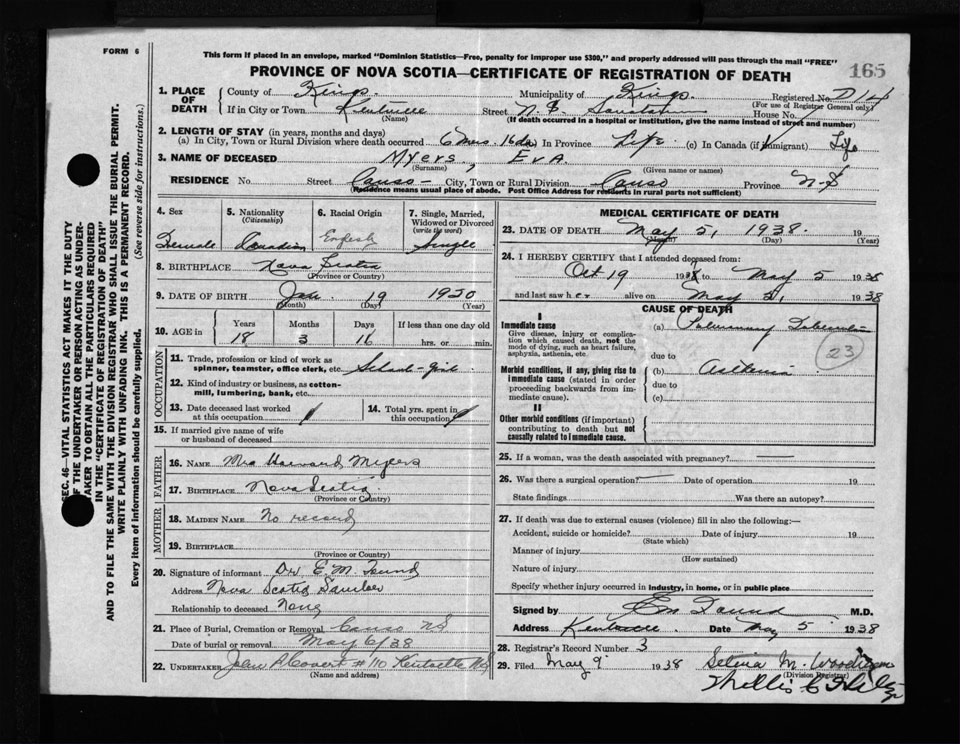 FORM 6
This form if placed in an envelope, marked "Dominion Statistics—Free, penalty for improper use $300," and properly addressed will pass through the mail "FREE"
165
PROVINCE OF NOVA SCOTIA—CERTIFICATE OF REGISTRATION OF DEATH
1. PLACE OF DEATH
County of Kings. Municipality of Kings. Registered No. D 14
(For use of Registrar General only)
If in City or Town Kentville Street N.S. House No.
(Name) (If death occurred in a hospital or institution, give the name instead of street and number)
2. LENGTH OF STAY (in years, months and days)
(a) In City, Town or Rural Division where death occurred 6 mos. 16 ds. In Province Life (c) In Canada (if immigrant) Life
3. NAME OF DECEASED Myers, Eva
(Surname) (Given name or names)
RESIDENCE No. Street Canso — City, Town or Rural Division Canso Province N-S
(Residence means usual place of abode. Post Office Address for residents in rural parts not sufficient)
4. Sex
Female
5. Nationality
(Citizenship)
Canadian
6. Racial Origin
English
7. Single, Married, Widowed or Divorced
(write the word)
Single
8. BIRTHPLACE Nova Scotia
(Province or Country)
9. DATE OF BIRTH Jan. 19 1920
(Month) (Day) (Year)
10. AGE in
Years Months Days If less than one day old
18 3 16 hrs. or min.
OCCUPATION
11. Trade, profession or kind of work as
spinner, teamster, office clerk, etc. School-girl
12. Kind of industry or business, as cotton-
mill, lumbering, bank, etc.
13. Date deceased last worked
at this occupation
14. Total yrs. spent in
this occupation
15. If married give name of wife
or husband of deceased
FATHER
16. NAME Mrs Howard Myers
17. BIRTHPLACE Nova Scotia
(Province or Country)
MOTHER
18. MAIDEN NAME No record
19. BIRTHPLACE
(Province or Country)
20. Signature of informant Dr E. M. Found
Address Nova Scotia
Relationship to deceased None
21. Place of Burial, Cremation or Removal Canso NS
Date of burial or removal May 6/38
22. UNDERTAKER # 110 Kentville NS
(Name and address)
MEDICAL CERTIFICATE OF DEATH
23. DATE OF DEATH May 5, 1938. 19
(Month) (Day) (Year)
24. I HEREBY CERTIFY that I attended deceased from:
Oct 19 193 to May 5 1938
and last saw h er alive on May 5, 1938
CAUSE OF DEATH
I
Immediate cause
Give disease, injury or complication which caused death, not the mode of dying, such as heart failure, asphyxia, asthenia, etc.
(a) Pulmonary Tuberculosis
23
due to
Morbid conditions, if any, giving rise to immediate cause (stated in order proceeding backwards from immediate cause).
(b) Asthenia
due to
(c)
II
Other morbid conditions (if important) contributing to death but not causally related to immediate cause.
25. If a woman, was the death associated with pregnancy?
26. Was there a surgical operation? Date of operation 19
State findings Was there an autopsy?
27. If death was due to external causes (violence) fill in also the following:—
Accident, suicide or homicide? Date of injury 19
(State which)
Manner of injury
(How sustained)
Nature of injury
Specify whether injury occurred in industry, in home, or in public place
Signed by E M Found M.D.
Address Kentville. Date May 5 1938
28. Registrar's Record Number 3
29. Filed May 9 1938 M.
(Division Registrar)
SEC. 46—VITAL STATISTICS ACT MAKES IT THE DUTY
OF THE UNDERTAKER OR PERSON ACTING AS UNDER-
TAKER TO OBTAIN ALL THE PARTICULARS REQUIRED
IN THE "CERTIFICATE OF REGISTRATION OF DEATH"
AND TO FILE THE SAME WITH THE DIVISION REGISTRAR WHO SHALL ISSUE THE BURIAL PERMIT.
WRITE PLAINLY WITH UNFADING INK. THIS IS A PERMANENT RECORD.
Every item of information should be carefully supplied. (See reverse side for instructions.)